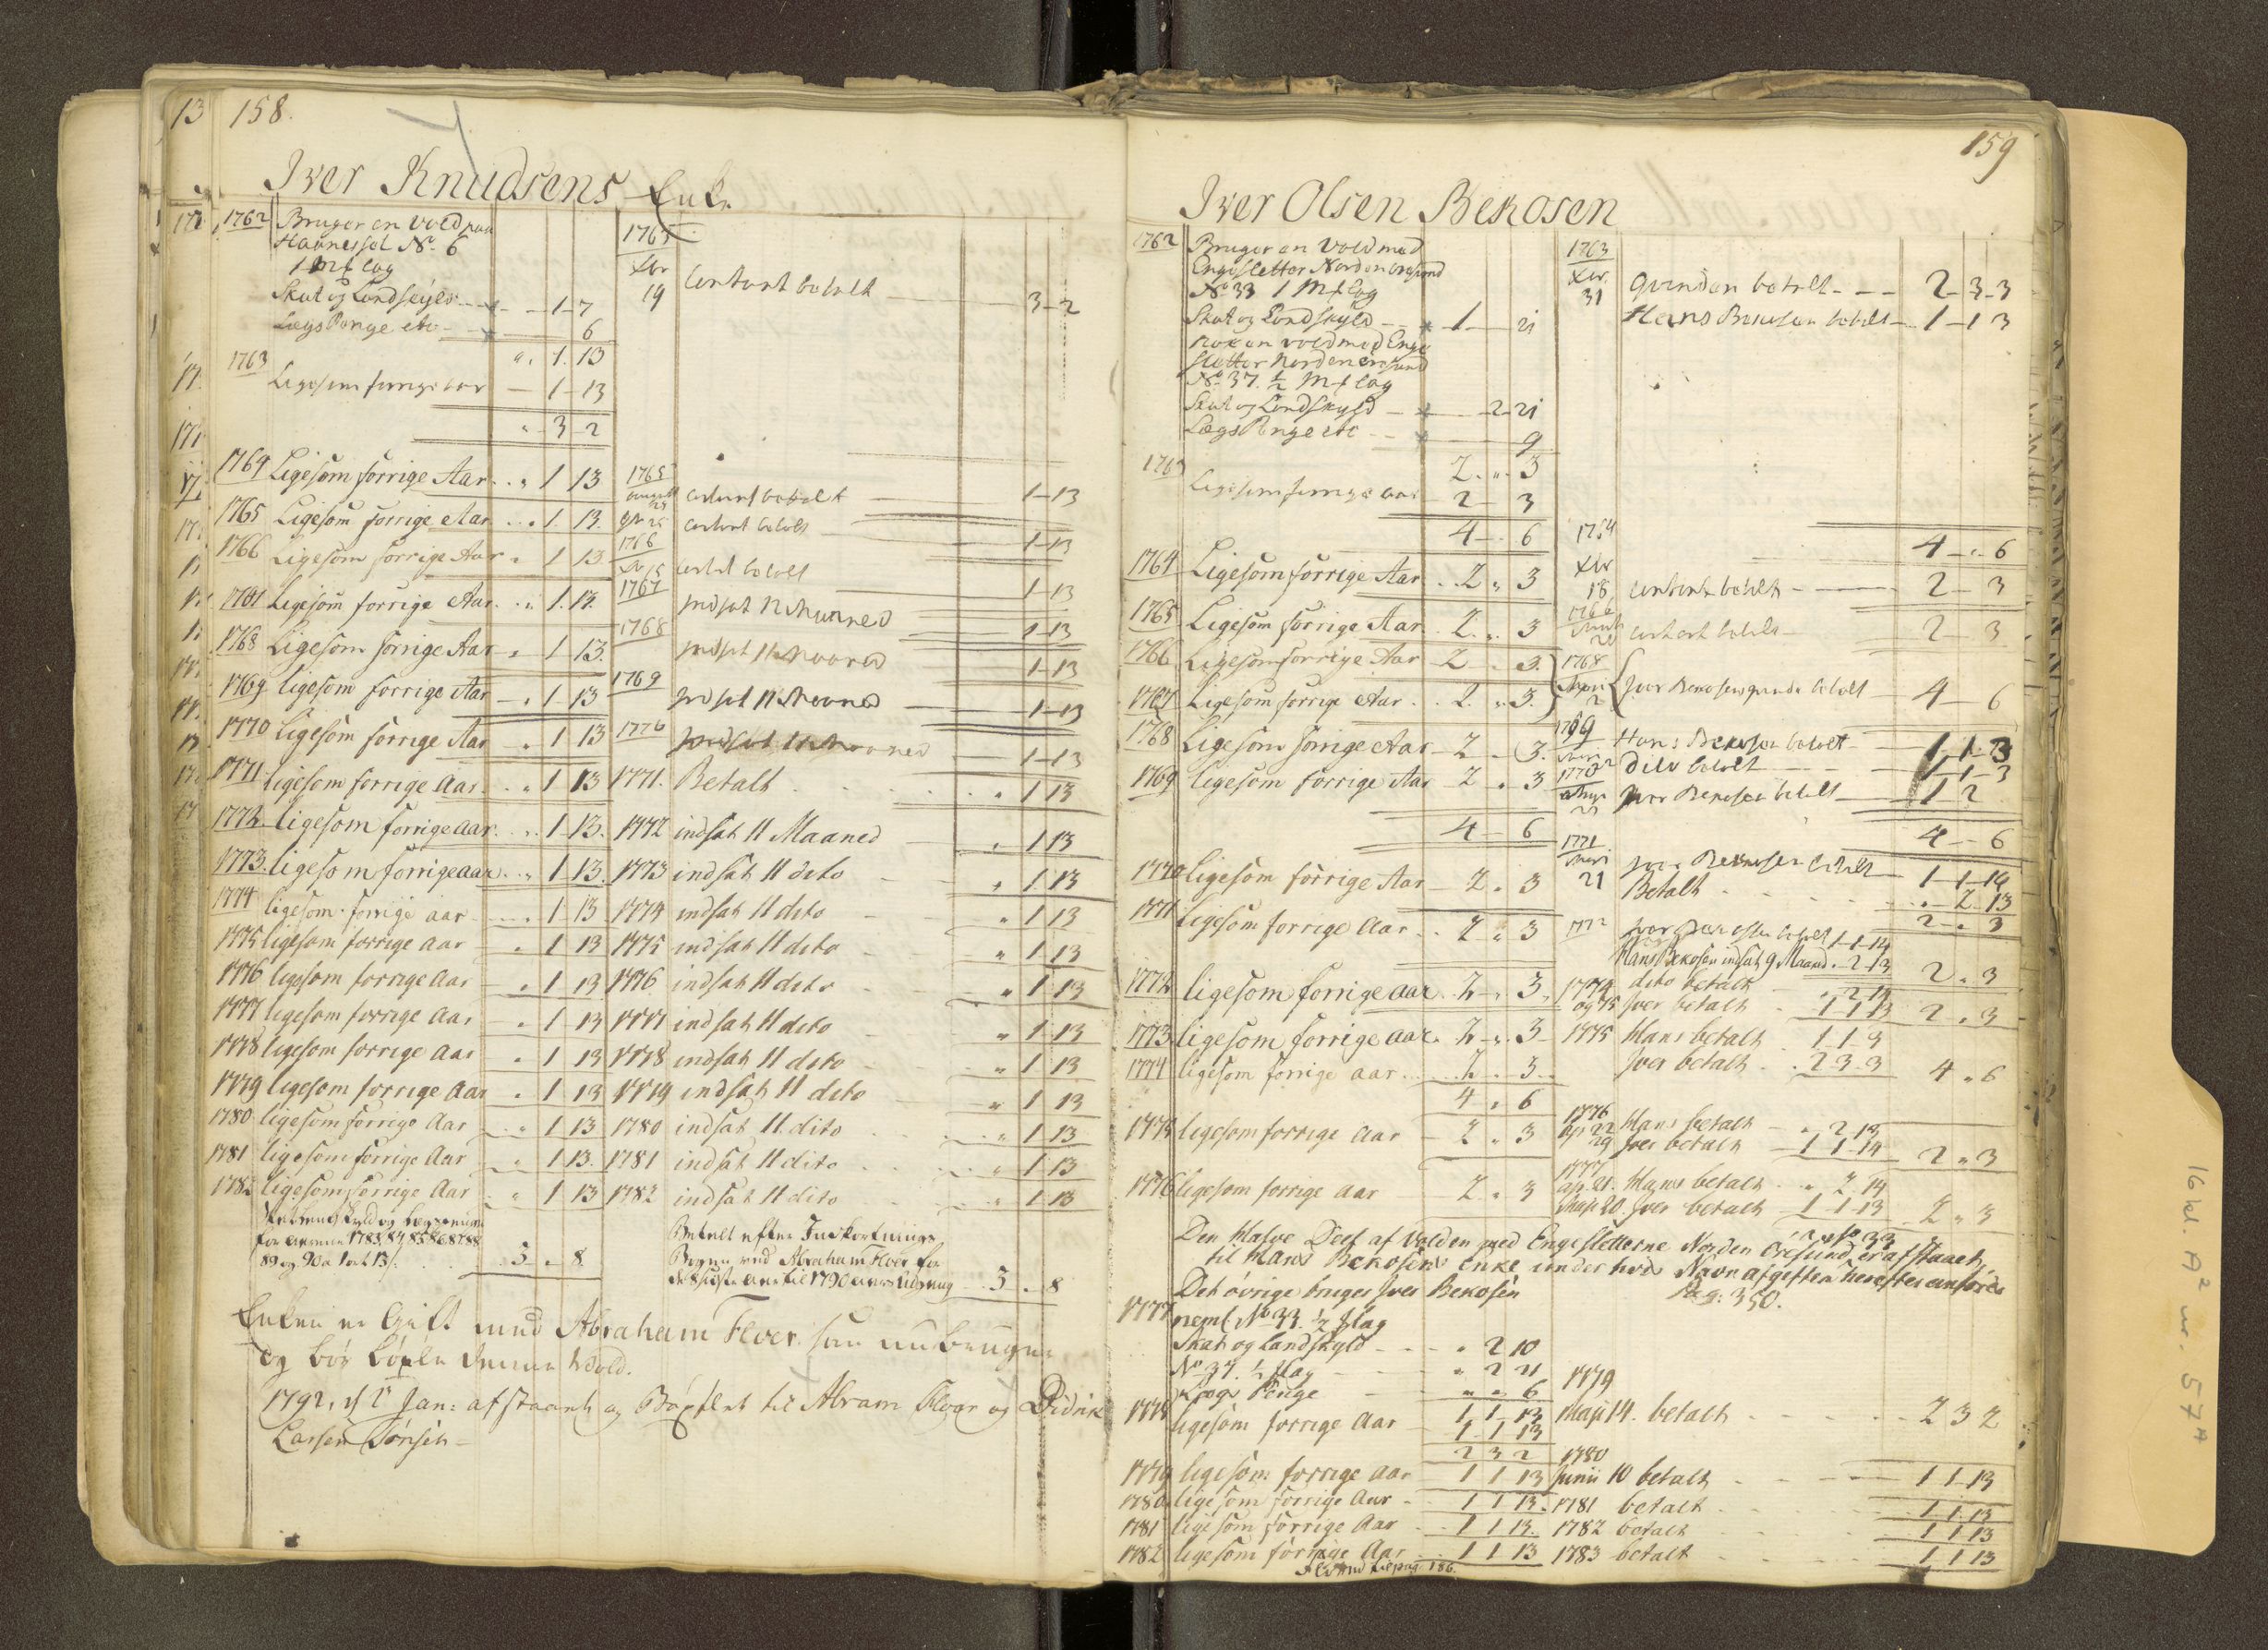 13 158.
Iver Knudsens Enke
1762 Bruger en Vold paa
Havnessel No. 6
1 Mk lag
Skat og Landskyld - - 1 - 7
Lægs Penge etc - - 6
" 1. 13
1763 Ligesom forrige aar - 1 - 13
" 3 - 2
1764 Ligesom forrige Aar . " 1 13
1765 Ligesom forrige Aar . . " 1 13.
1766 Ligesom forrige Aar " 1 13
1767 Ligesom forrige Aar . " 1. 13.
1768 Ligesom forrige Aar " 1 13.
1769 ligesom forrige Aar - " 1 - 13
1770 ligesom forrige Aar " 1 13
1771 ligesom forrige Aar . " 1 13
1772. ligesom forrige aar . " 1 - 13.
1773. ligesom forrige aar . " 1 - 13.
1774 ligesom forrige aar " 1 - 13
1775 ligesom forrige aar " 1 13
1776 ligesom forrige Aar " 1 13
1777 ligesom forrige Aar " 1 - 13
1778 ligesom forrige Aar " 1 13
1779 ligesom forrige Aar " 1 13
1780 ligesom forrige Aar " 1 13
1781 ligesom forrige Aar " 1 13.
1782 ligesom forrige Aar " 1 13
for aarene 1783. 84. 85. 86. 87. 88
89 og 90 a 1 ort 13 s. 3 " 8
1763
Xbr
19 Contant betalt - 3 - 2
1765
august
23 contant betalt - 1 - 13
contant betalt 1 - 13
1766
Xbr 15 contant betalt 1 - 13
1767 Indsat 11 Maaned 1 - 13
1768 Indsat 11 Maaned 1 - 13
1769 Indsat 11 Maaned 1 - 13
1770 Indsat 11 Maaned 1 - 13
1771. Betalt . . . " 1 13
1772 indsat 11 Maaned " 1 13
1773 indsat 11 dito " 1 13
1774 indsat 11 dito " 1 13
1775 indsat 11 dito " 1 13
1776 indsat 11 dito " 1 13
1777 indsat 11 dito " 1 13
1778 indsat 11 dito " 1 13
1779 indsat 11 dito " 1 13
1780 indsat 11. dito " 1 13
1781 indsat 11 dito " 1 13
1782 indsat 11 dito " 1 13
Betalt efter Indkortnings
Bogen ved Abraham Floer for
til 1790 aars Udgang 3 " 8
Enken er Gift med Abraham Floer som nu bruger
og bør bøxle denne Vold.
1792, d 2 Jan: afstaaet og Bøxlet til Abram Floer og Didrik
Larsen Tønsen
159
Iver Olsen Bekosen
1762 Bruger en Vold med
Engesletter Norden øresund
No 33 1 Mk lag
Skat og Landskyld - 1 - 21
nok en vold med Enge
sletter Norden øresund
No. 37. ½ Mk lag
Skat og Landskyld - - 2 - 21
Lægs Penge etc - - 9
2. " 3
1763 Ligesom forrige aar - 2 - 3
4 - " 6
1764 Ligesom forrige Aar . 2 " 3
1765 Ligesom forrige Aar . 2. " 3
1766 Ligesom forrige Aar 2 - " 3.
1767 Ligesom forrige Aar . 2. " 3.
1768 Ligesom forrige Aar - 2 - " 3.
1769 ligesom forrige Aar 2 " 3
4 - 6
1770 ligesom forrige Aar - 2 " 3
1771 ligesom forrige Aar . 2 " 3
1772 ligesom forrige aar. 2 - " 3
1773 ligesom forrige aar. 2 - " 3
1774 ligesom forrige aar 2 " 3
4 " 6
1775 ligesom forrige Aar 2 " 3
1776 ligesom forrige Aar 2 " 3
1763
Xbr.
31 qvinden betalt - - 2 - 3 - 3
Hans Bekosen betalt - 1 - 1 3
4 - " - 6
1764
Xbr
18 Contant betalt - 2 - 3
1766
contant betalt - 2 - 3
1768
Iver Bekosens qvinde betalt - 4 - 6
1769 Hans Bekosen betalt - 1 - 1 - 3
1770 dito betalt - - 1 - 1 - 3
Iver Bekosen betalt - 1 2
4 - 6
1771
21 Iver Bekosen betalt - 1 - 1 - 14
Betalt . . " 2 - 13
2 - " 3
1772 Iver Bekosen betalt 1 - 1 - 14
Hans Bekosen indsat 9 Maaned " 2 - 13 2 " 3
1774 dito betalt " 2 14
og 75 Iver betalt 1 1 13 2 " 3
1775 Hans betalt 1 1 3
Iver betalt . . 2 3 3 4 " 6
1776
apr 22 Hans betalt " 2 13
29 Iver betalt 1 1 14 2 " 3
1777
apr. 21. Hans betalt " 2 14
Maji 20. Iver betalt 1 1 13 2 " 3
Den Halve Deel af Volden med Engesletterne Norden Øresund No 33 er afstaaet
til Hans Bekosens Enke under hvis Navn afgiften herefter anføres
pag: 350.
Det øvrige bruger Iver Bekosen
1777 neml. No 33. ½ Mlag
Skat og Landskyld - - " 2 10
No 37. ½ Mlag - - " 2 21
Lægs Penge " " 6
1 1 13
1778 ligesom forrige Aar 1 1 13
2 3 2
1779 ligesom forrige Aar 1 1 13
1780 ligesom forrige Aar - 1 1 13.
1781 ligesom forrige Aar 1 1 13.
1782 ligesom forrige Aar . 1 1 13
til pag 186.
1779
Maji 14. betalt . . . 2 3 2
1780
Junii 10 betalt - 1 1 13
1781 betalt 1 1 13
1782 betalt 1 1 13
1783 betalt 1 1 13
16 kl. A² nr. 57 A